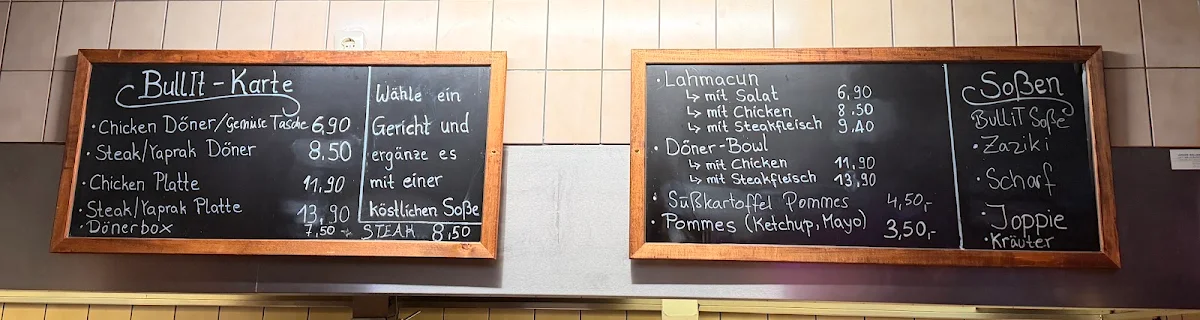 BullIt - Karte
• Chicken Döner/Gemüse Tasche 6,90
• Steak/Yaprak Döner 8,50
• Chicken Platte 11,90
• Steak/Yaprak Platte 13,90
• Dönerbox 7,50 STEAK 8,50
Wähle ein
Gericht und
ergänze es
mit einer
köstlichen Soße
• Lahmacun
↳ mit Salat 6,90
↳ mit Chicken 8,50
↳ mit Steakfleisch 9,40
• Döner-Bowl
↳ mit Chicken 11,90
↳ mit Steakfleisch 13,90
• Süßkartoffel Pommes 4,50,-
• Pommes (Ketchup, Mayo) 3,50,-
Soßen
BULLiT Soße
• Zaziki
• Scharf
• Joppie
• Kräuter